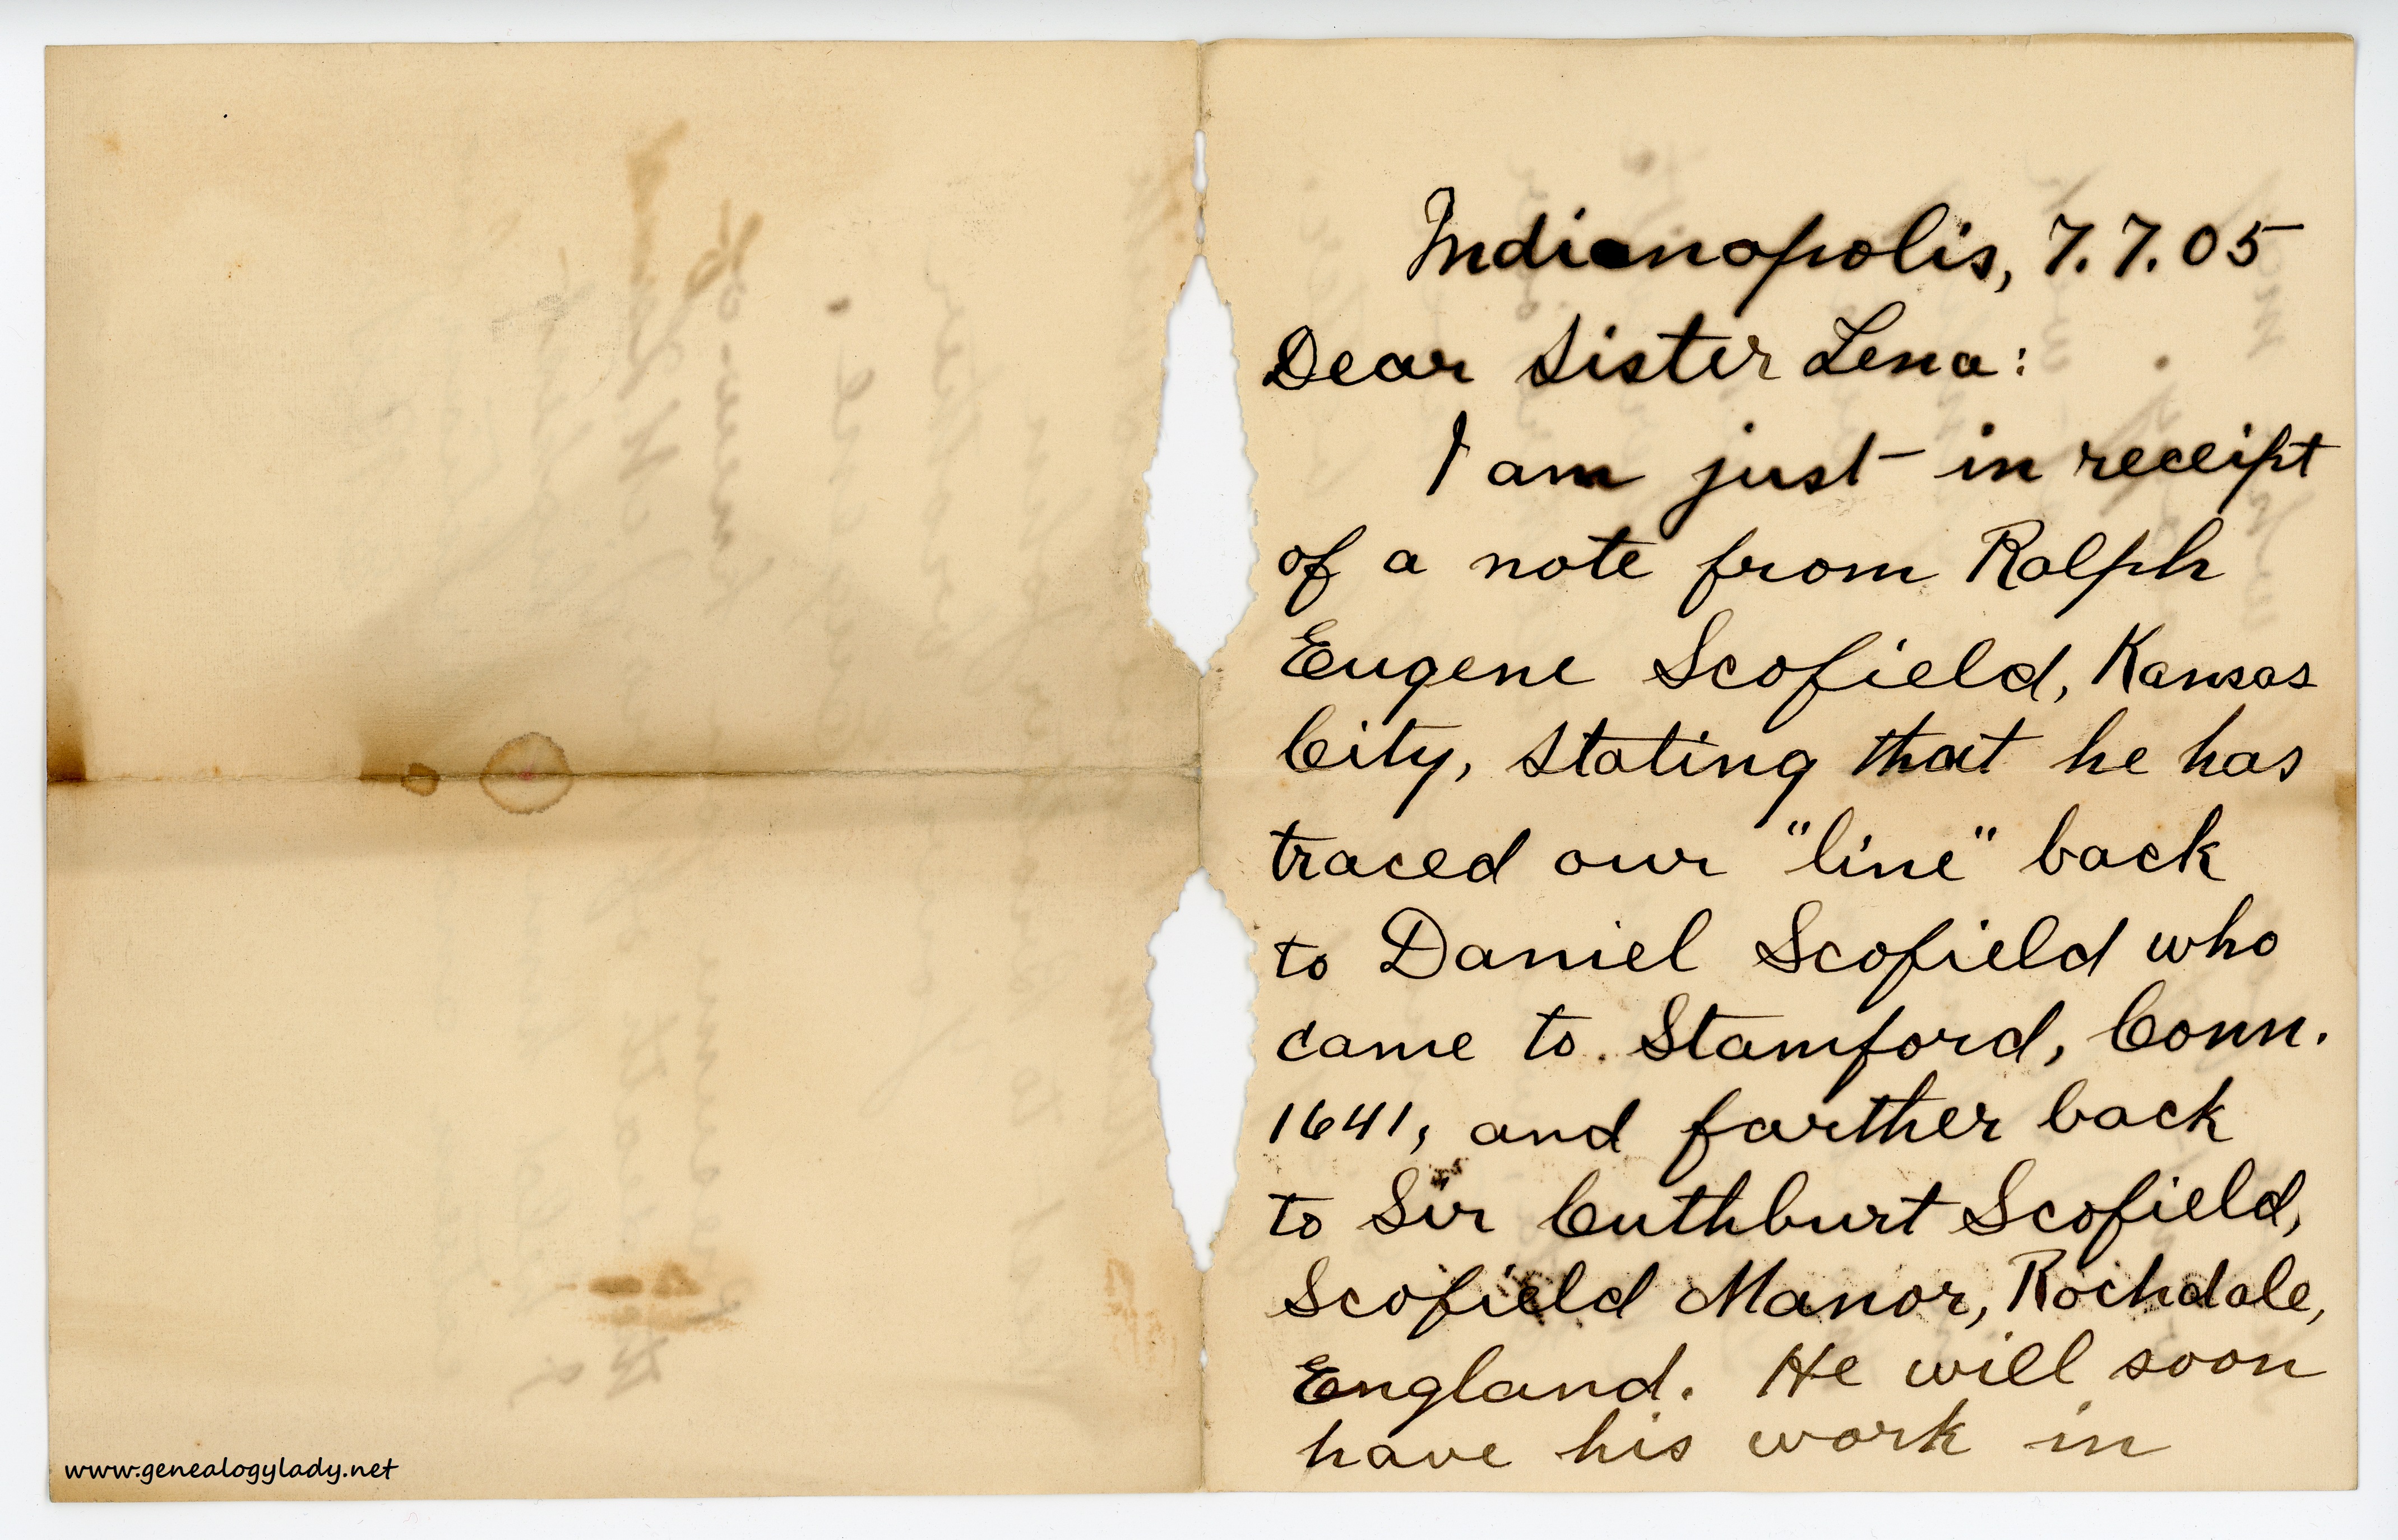 Indianapolis, 7.7.05
Dear Sister Lena:
I am just in receipt
of a note from Ralph
Eugene Scofield, Kansas
City, stating that he has
traced our "line" back
to Daniel Scofield who
came to Stamford, Conn.
1641, and farther back
to Sir Cuthburt Scofield,
Scofield Manor, Rochdale,
England. He will soon
have his work in
www.genealogylady.net